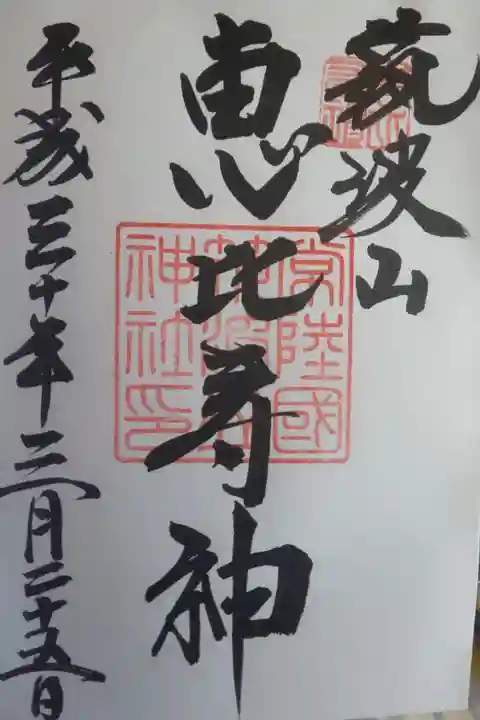 筑波山
恵比寿神
平成三十年三月二十五日
常陸國
筑波山
神社印